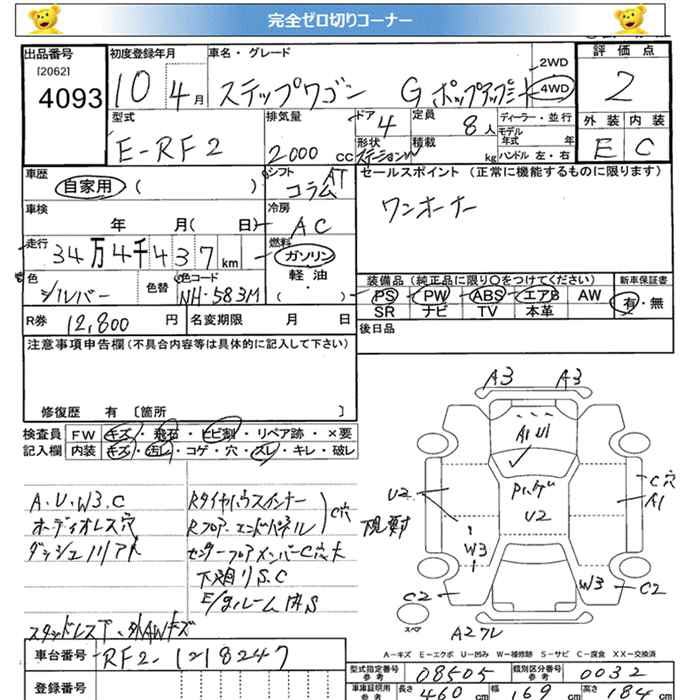 完全ゼロ切りコーナー
出品番号 初度登録年月 車名・グレード 評価点
[2062]
4093 10 4月 ステップワゴン G ポップアップ 2WD 4WD 2
型式 排気量 ドア 定員 ディーラー・並行 外装 内装
E-RF2 2000cc 4 8人 モデル年式 年 E C
形状 積載 kg ハンドル 左・右
車歴 シフト セールスポイント (正常に機能するものに限ります)
自家用 ( ) コラムAT
車検 冷房 ワンオーナー
年 月( 日) AC
走行 燃料
34万4千437km ガソリン
軽油
色 色替 色コード ( ・ ) 装備品 (純正品に限り○をつけてください) 新車保証書
シルバー NH-583M PS PW ABS エアB AW 有・無
SR ナビ TV 本革
R券 12,800円 名変期限 月 日 後日品
注意事項申告欄 (不具合内容等は具体的に記入して下さい)
修復歴 有 [箇所 ]
検査員 FW キズ・飛石・ヒビ割・リペア跡・×要
記入欄 内装 キズ・汚レ・コゲ・穴・スレ・キレ・破レ
A3 A3
A1 U1
A・U・W3・C Rタイヤハウスインナー
オーディオレス穴 Rフロア、エンドパネル C穴
ダッシュ センターフロアメンバーC穴大
下廻りS、C
E/gルーム S
U2 U2 C穴 A1
W3 W3
C2 C2
スペア A2
スタッドレス
A-キズ E-エクボ U-凹み W-補修跡 S-サビ C-腐食 XX-交換済
車台番号 RF2-1218247 型式指定番号 08505 類別区分番号 0032
参考 参考
登録番号 車庫証明用 長さ 460cm 幅 169cm 高さ 184cm